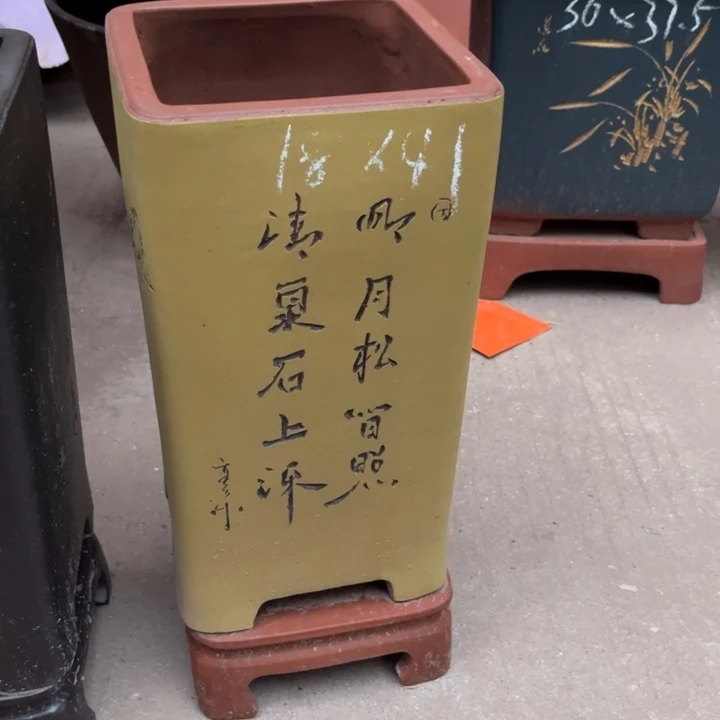 18 x 41
明月松间照
清泉石上流
30x37.5